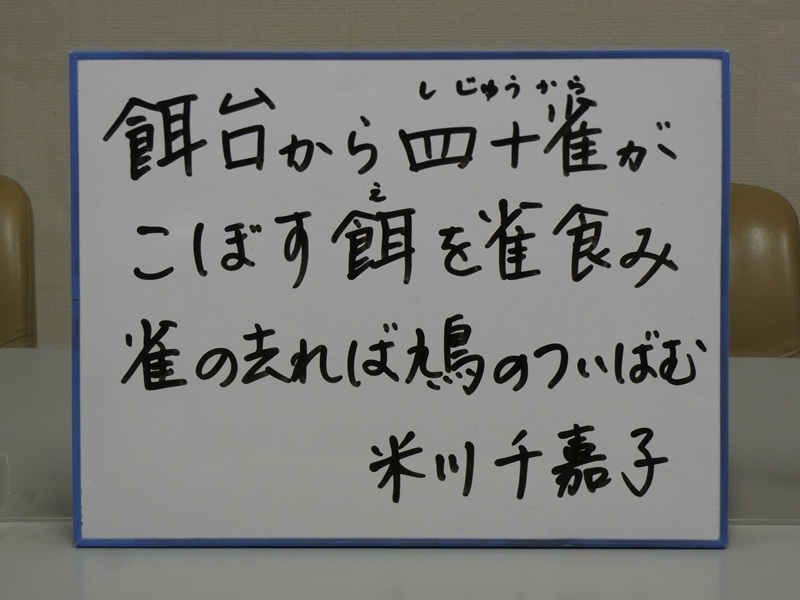 餌台から四十雀が
こぼす餌を雀食み
雀の去れば鳩のついばむ
米川千嘉子
しじゅうから
え